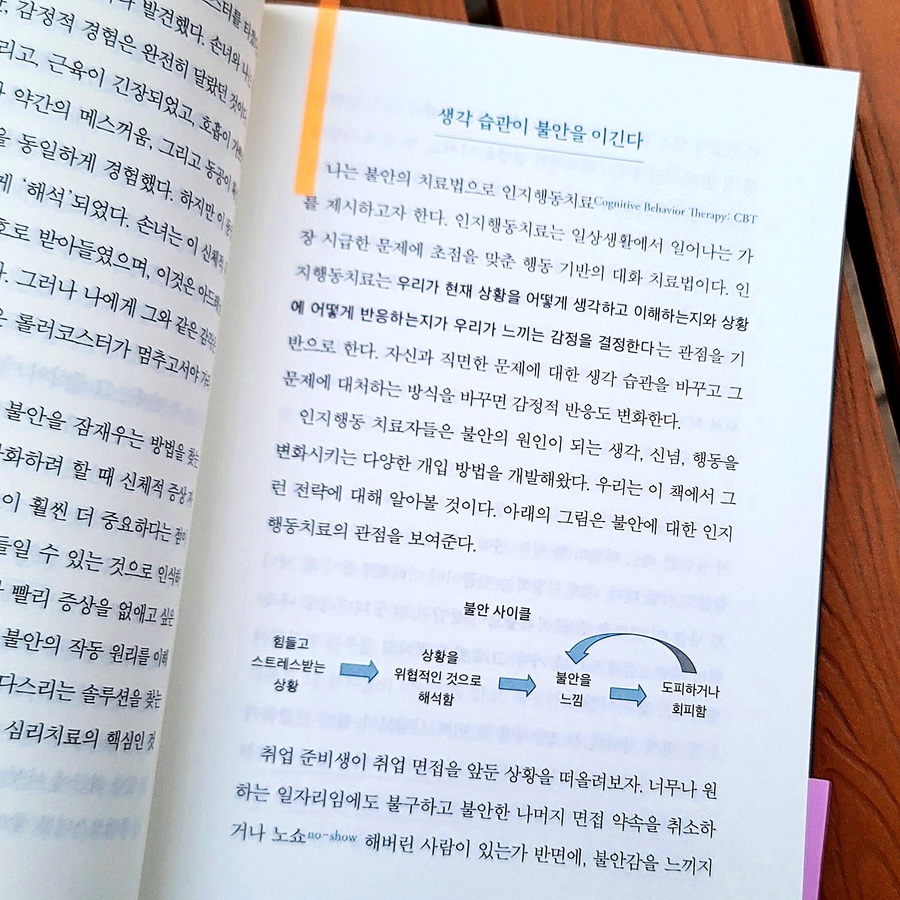 스터를 타
발견했다. 손녀와 나
감정적 경험은 완전히 달랐던 것이
리고, 근육이 긴장되었고, 호흡이
약간의 메스꺼움, 그리고 동공이
을 동일하게 경험했다. 하지만 이
게 ‘해석’되었다. 손녀는 이 신체적
호로 받아들였으며, 이것은 아드레
그러나 나에게 그와 같은 감각
은 롤러코스터가 멈추고서야
불안을 잠재우는 방법을 찾는
화하려 할 때 신체적 증상
이 훨씬 더 중요하다는 점이
들일 수 있는 것으로 인식하
빨리 증상을 없애고 싶은
불안의 작동 원리를 이해
다스리는 솔루션을 찾는
심리치료의 핵심인 것
생각 습관이 불안을 이긴다
나는 불안의 치료법으로 인지행동치료Cognitive Behavior Therapy: CBT
를 제시하고자 한다. 인지행동치료는 일상생활에서 일어나는 가
장 시급한 문제에 초점을 맞춘 행동 기반의 대화 치료법이다. 인
지행동치료는 우리가 현재 상황을 어떻게 생각하고 이해하는지와 상황
에 어떻게 반응하는지가 우리가 느끼는 감정을 결정한다는 관점을 기
반으로 한다. 자신과 직면한 문제에 대한 생각 습관을 바꾸고 그
문제에 대처하는 방식을 바꾸면 감정적 반응도 변화한다.
인지행동 치료자들은 불안의 원인이 되는 생각, 신념, 행동을
변화시키는 다양한 개입 방법을 개발해왔다. 우리는 이 책에서 그
런 전략에 대해 알아볼 것이다. 아래의 그림은 불안에 대한 인지
행동치료의 관점을 보여준다.
불안 사이클
힘들고
스트레스받는
상황
상황을
위협적인 것으로
해석함
불안을
느낌
도피하거나
회피함
취업 준비생이 취업 면접을 앞둔 상황을 떠올려보자. 너무나 원
하는 일자리임에도 불구하고 불안한 나머지 면접 약속을 취소하
거나 노쇼no-show 해버린 사람이 있는가 반면에, 불안감을 느끼지